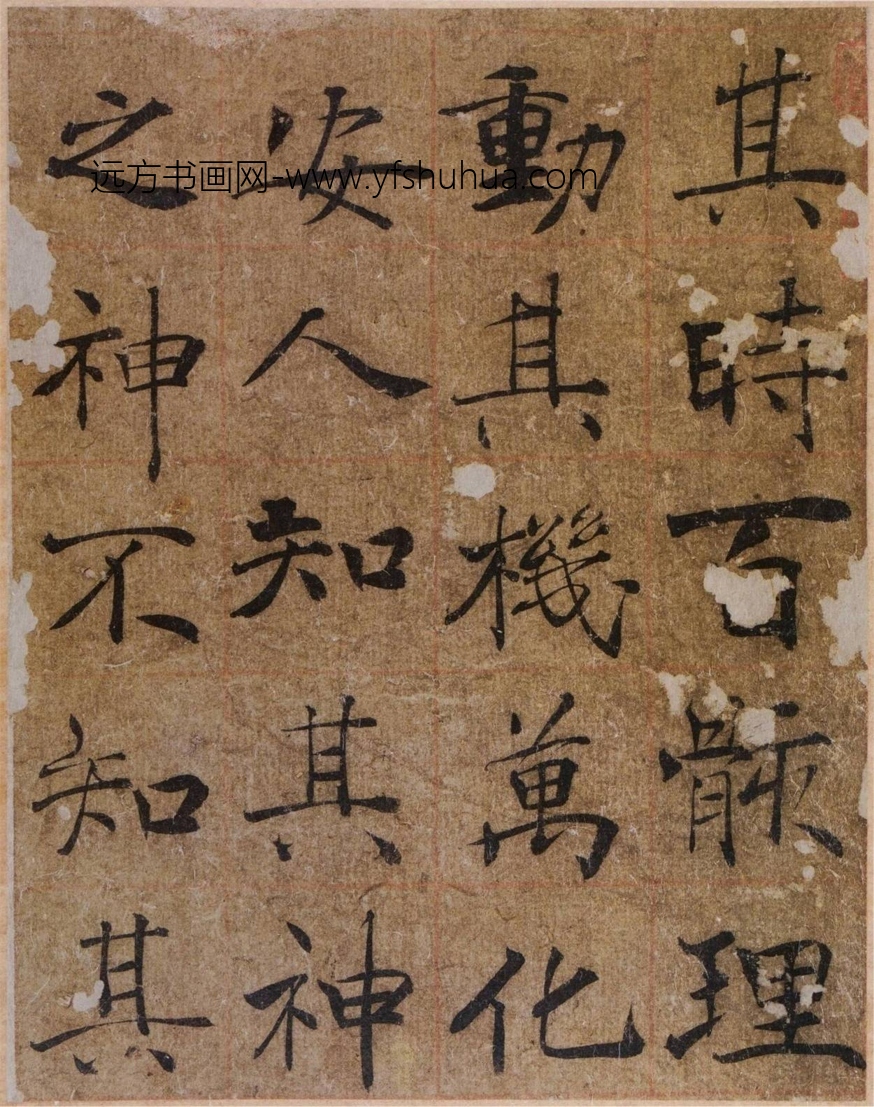 其時百骸理
動其機萬化
安人知其神
之神不知其
远方书画网-www.yfshuhua.com